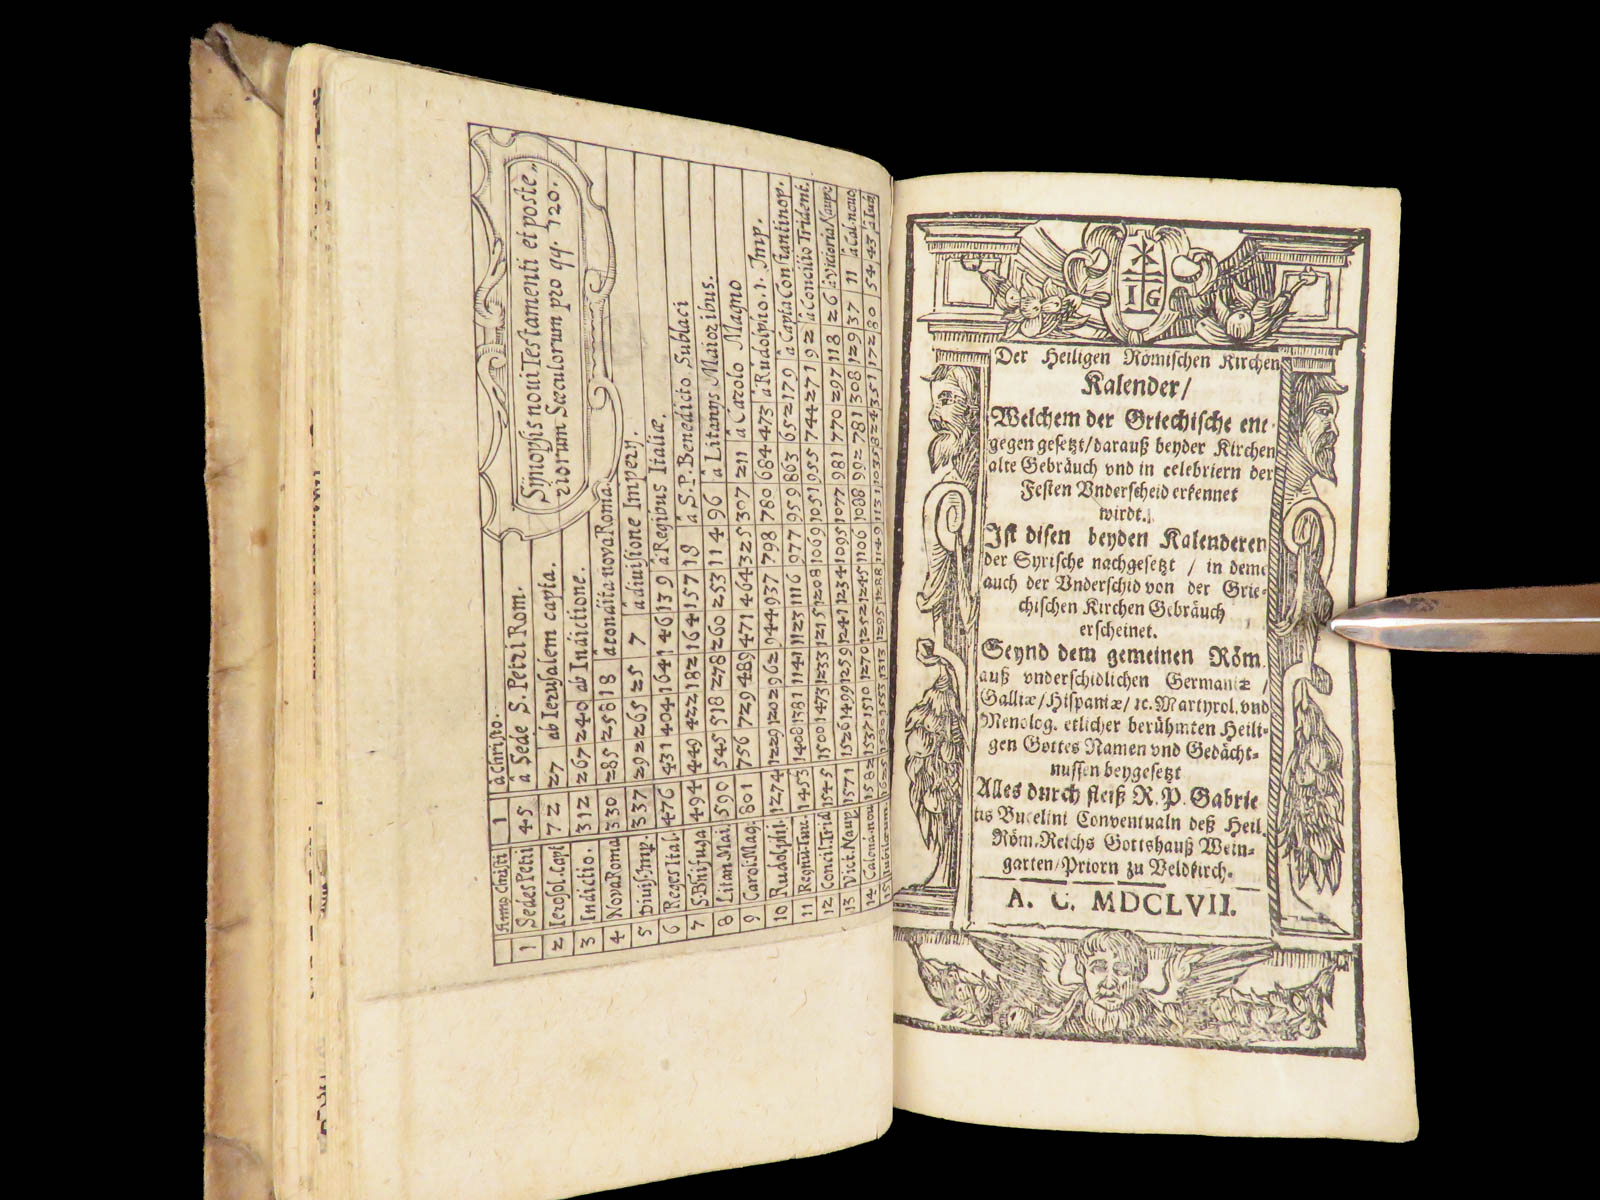 Sÿnopsis noui Testamenti et poste„
riorum Sæculorum pro qq. 720.
Anno Christi 1 à Christo.
1 Sedes Petri 45 à Sede S. Petri Rom.
2 Ierosol. capt 72 27 ab Ierusalem capta.
3 Indictio. 312 267 240 ab Indictione.
4 Nova Roma 330 285 258 18 à condita nova Roma.
5 Diuis. Imp. 337 292 265 25 7 à diuisione Imperÿ.
6 Reges Ital. 476 431 404 164 146 139 à Regibus Italiæ.
7 fuga 494 449 422 182 164 157 18 à S. P. Benedicto Sublaci
8 Litan. Mai. 590 545 518 278 260 253 114 96 à Litanÿs Maioribus.
9 Caroli Mag. 801 756 729 489 471 464 325 307 211 à Carolo Magno
10 Rudolphi. 1274 1229 1202 962 944 937 798 780 684 473 à Rudolpho. 1. Imp.
11 Regnū Turc. 1453 1408 1381 1141 1123 1116 977 959 863 652 179 à Capta Constantinop.
12 Concil. Trid 1545 1500 1473 1233 1215 1208 1069 1051 955 744 271 92 à Concilio Trident.
13 Vict. Naup 1571 1526 1499 1259 1241 1234 1095 1077 981 770 297 118 26 à Victoria Naupc
14 1582 1537 1510 1270 1252 1245 1106 1088 992 781 308 129 37 11 à Cal. nouo
15 Iubilæum 1625 1580 1553 1313 1295 1288 1149 1131 1035 824 351 172 80 54 43
IG
Der Heiligen Römischen Kirchen
Kalender/
Welchem der Griechische ent-
gegen gesetzt/ darauß beyder Kirchen
alte Gebräuch vnd in celebriern der
Festen Vnderscheid erkennet
wirdt.
Ist disen beyden Kalenderen
der Syrische nachgesetzt / in deme
auch der Vnderschid von der Grie-
chischen Kirchen Gebräuch
erscheinet.
Seynd dem gemeinen Röm.
auß vnderschidlichen Germaniæ /
Galliæ/ Hispaniæ/ ꝛc. Martyrol. vnd
Menolog. etlicher berühmten Heili-
gen Gottes Namen vnd Gedächt-
nussen beygesetzt
Alles durch fleiß R. P. Gabrie
lis Bucelini Conventualn deß Heil.
Röm. Reichs Gottshauß Wein-
garten/ Priorn zu Veldkirch.
A. C. MDCLVII.